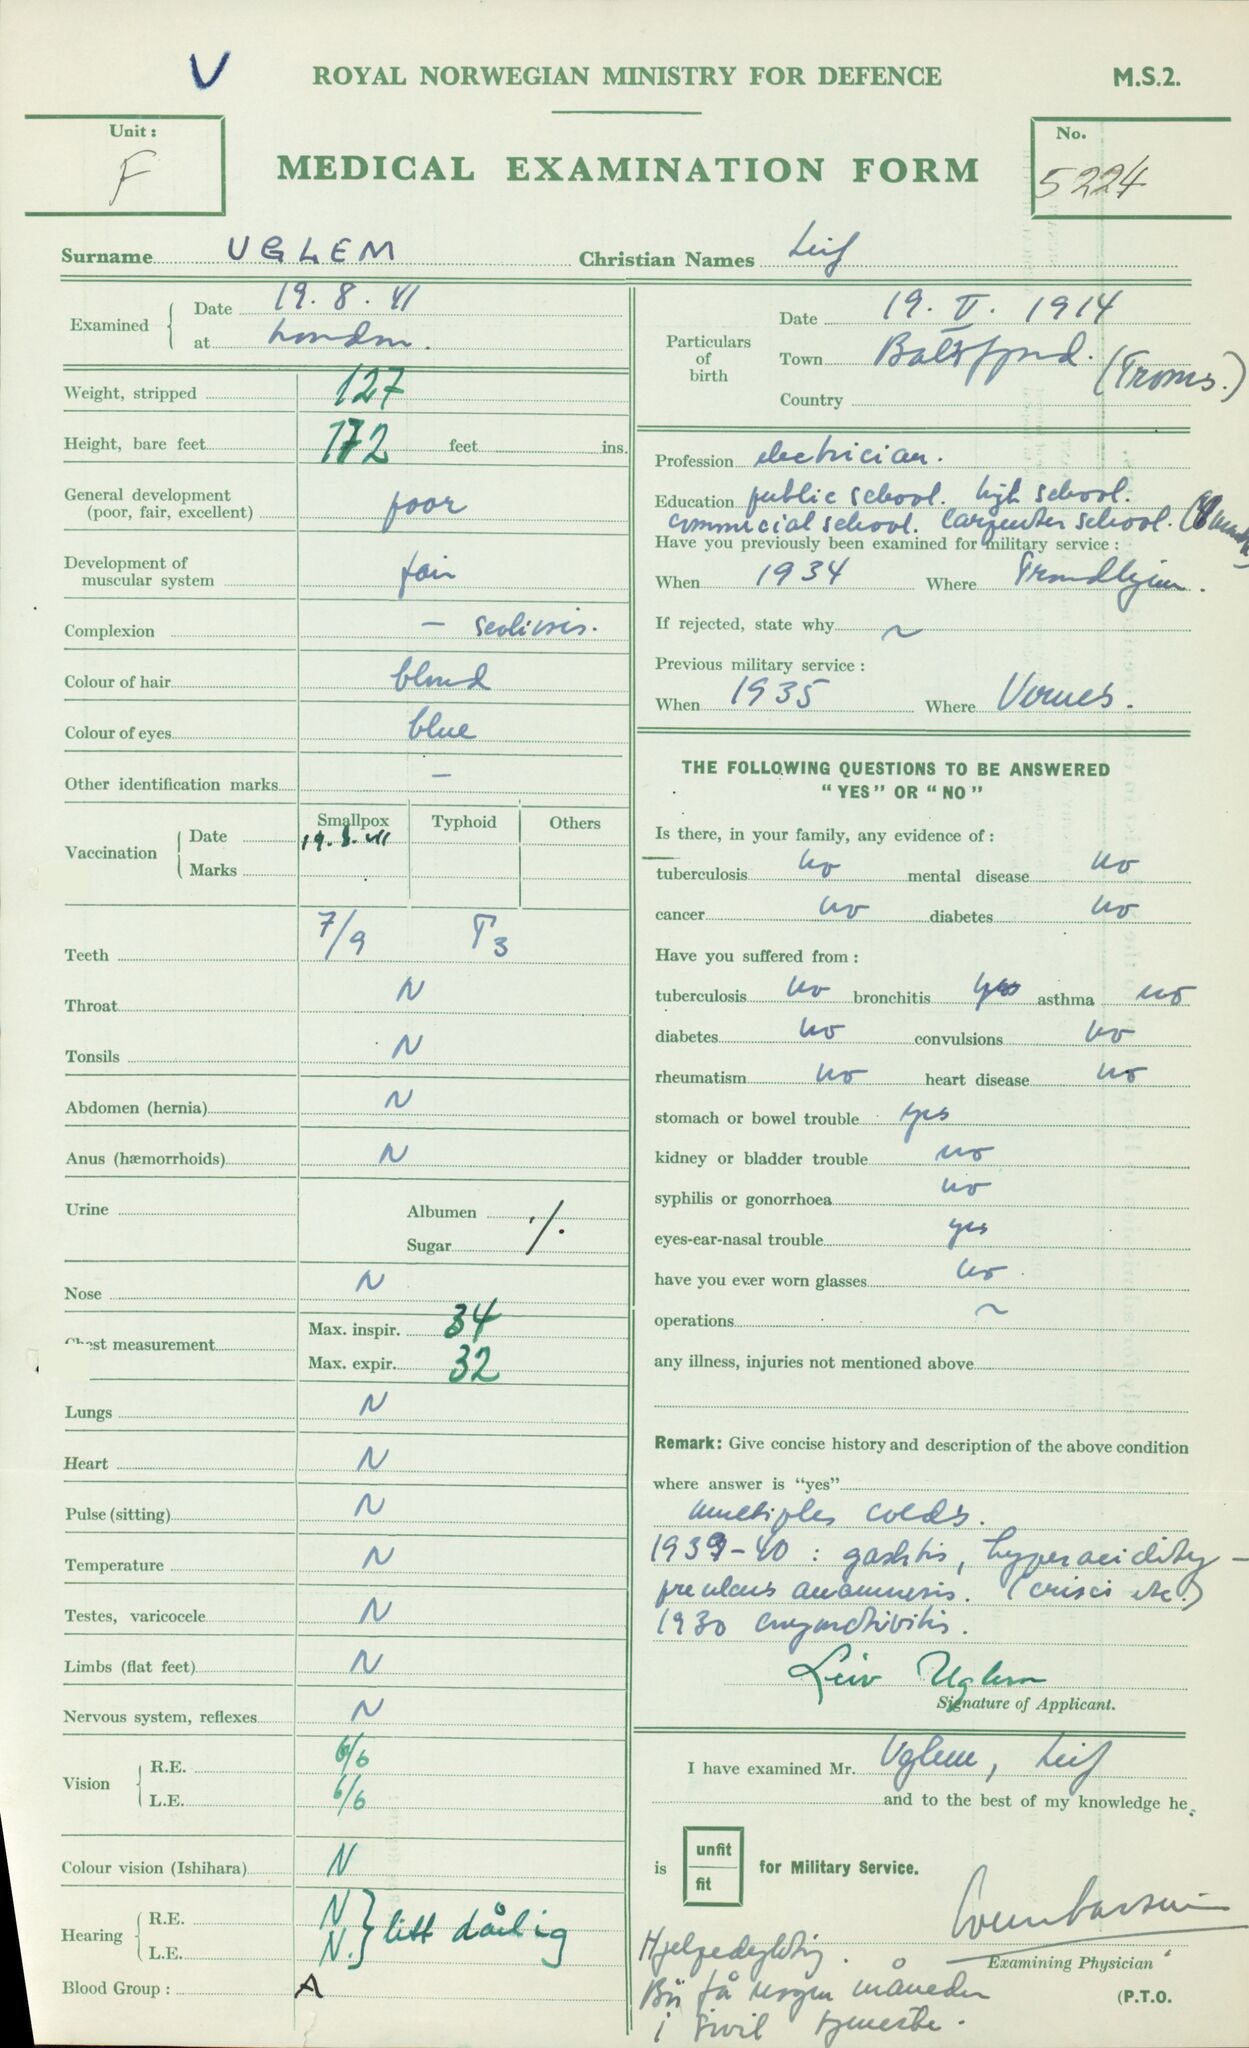 V
ROYAL NORWEGIAN MINISTRY FOR DEFENCE
M.S.2.
Unit :
F
MEDICAL EXAMINATION FORM
No.
5224
Surname UGLEM
Christian Names Leif
Examined
Date 19. 8. 41
at London.
Weight, stripped 127
Height, bare feet 172 feet ins.
General development
(poor, fair, excellent) poor
Development of
muscular system fair
Complexion — scoliosis.
Colour of hair blond
Colour of eyes blue
Other identification marks —
Vaccination
Smallpox Typhoid Others
Date 19. 8. 41
Marks
Teeth 7/9 T3
Throat N
Tonsils N
Abdomen (hernia) N
Anus (hæmorrhoids) N
Urine
Albumen
Sugar ·/.
Nose N
Chest measurement
Max. inspir. 34
Max. expir. 32
Lungs N
Heart N
Pulse (sitting) N
Temperature N
Testes, varicocele N
Limbs (flat feet) N
Nervous system, reflexes N
Vision
R.E. 6/6
L.E. 6/6
Colour vision (Ishihara) N
Hearing
R.E. N
L.E. N. } litt dårlig
Blood Group : A
Particulars
of
birth
Date 19. V. 1914
Town Balsfjord. (Troms.)
Country
Profession electrician.
Education public school. high school.
commercial school. Carpenter school.
Have you previously been examined for military service :
When 1934 Where Trondhjem.
If rejected, state why ~
Previous military service :
When 1935 Where Værnes.
THE FOLLOWING QUESTIONS TO BE ANSWERED
"YES" OR "NO"
Is there, in your family, any evidence of :
tuberculosis no mental disease no
cancer no diabetes no
Have you suffered from :
tuberculosis no bronchitis yes asthma no
diabetes no convulsions no
rheumatism no heart disease no
stomach or bowel trouble yes
kidney or bladder trouble no
syphilis or gonorrhoea no
eyes-ear-nasal trouble yes
have you ever worn glasses no
operations ~
any illness, injuries not mentioned above
Remark: Give concise history and description of the above condition
where answer is "yes"
multiples colds.
1939-40 : gastritis, hyperacidity —
anamnesis. (crisis etc.)
1930 conjunctivitis.
Leiv Uglem
Signature of Applicant.
I have examined Mr. Uglem, Leif
and to the best of my knowledge he
is unfit
fit for Military Service.
Examining Physician
Hjelpedyktig.
Bör få nogen måneder
i sivil tjeneste.
(P.T.O.